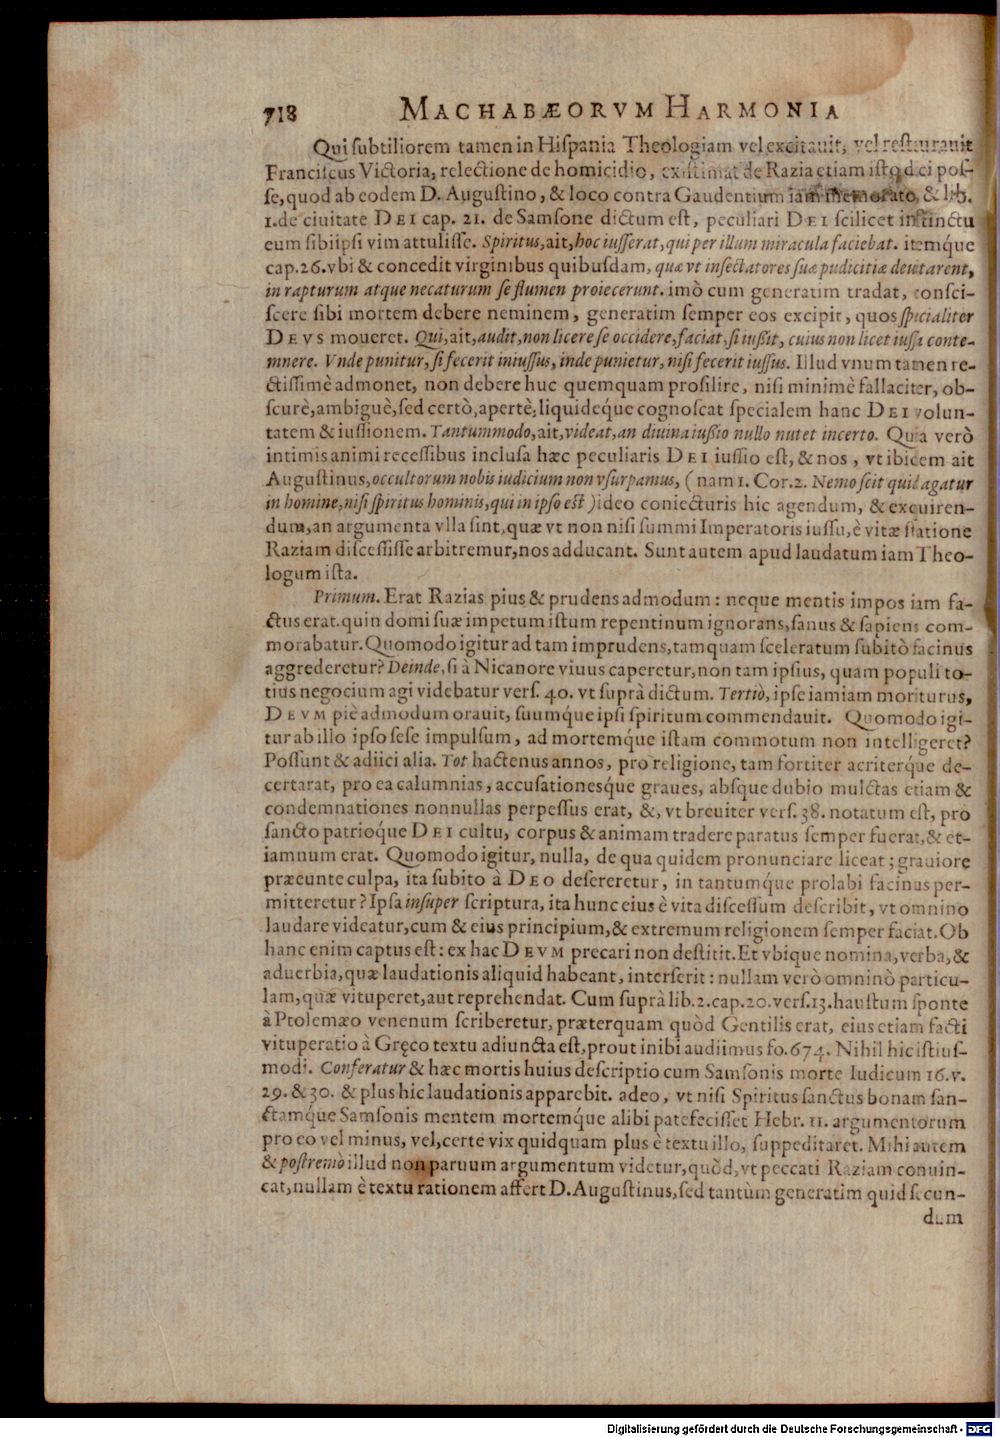 718 MACHABÆORVM HARMONIA
Qui ſubtiliorem tamen in Hiſpania Theologiam vel excitauit, vel reſtaurauit
Franciſcus Victoria, relectione de homicidio, exiſtimat de Razia etiam iſtod ici poſ-
ſe, quod ab eodem D. Auguſtino, & loco contra Gaudentium iam memorato, & lib.
1. de ciuitate DEI cap. 21. de Samſone dictum eſt, peculiari DEI ſcilicet inſtinctu
eum ſibiipſi vim attuliſſe. Spiritus, ait, hoc iuſſerat, qui per illum miracula faciebat. itemq́ue
cap. 26. vbi & concedit virginibus quibuſdam, quæ vt inſectatores ſuæ pudicitiæ deuitarent,
in rapturum atque necaturum ſe flumen proiecerunt. imò cum generatim tradat, conſci-
ſcere ſibi mortem debere neminem, generatim ſemper eos excipit, quos ſpecialiter
DEVS moueret. Qui, ait, audit, non licere ſe occidere, faciat, ſi iußit, cuius non licet iuſſa conte-
mnere. Vnde punitur, ſi fecerit iniuſſus, inde punietur, niſi fecerit iuſſus. Illud vnum tamen re-
ctiſſimè admonet, non debere huc quemquam proſilire, niſi minimè fallaciter, ob-
ſcurè, ambiguè, ſed certò, apertè, liquideq́ue cognoſcat ſpecialem hanc DEI volun-
tatem & iuſſionem. Tantummodo, ait, videat, an diuina iußio nullo nutet incerto. Quia verò
intimis animi receſſibus incluſa hæc peculiaris DEI iuſſio eſt, & nos, vt ibidem ait
Auguſtinus, occultorum nobis iudicium non vſurpamus, (nam 1. Cor. 2. Nemo ſcit quid agatur
in homine, niſi ſpiritus hominis, qui in ipſo eſt) ideo coniecturis hic agendum, & exquiren-
dum, an argumenta vlla ſint, quæ vt non niſi ſummi Imperatoris iuſſu, è vitæ ſtatione
Raziam diſceſſiſſe arbitremur, nos adducant. Sunt autem apud laudatum iam Theo-
logum iſta.
Primum. Erat Razias pius & prudens admodum: neque mentis impos iam fa-
ctus erat. quin domi ſuæ impetum iſtum repentinum ignorans, ſanus & ſapiens com-
morabatur. Quomodo igitur ad tam imprudens, tamquam ſceleratum ſubitò facinus
aggrederetur? Deinde, ſi à Nicanore viuus caperetur, non tam ipſius, quam populi to-
tius negocium agi videbatur verſ. 40. vt ſuprà dictum. Tertiò, ipſe iamiam moriturus,
DEVM piè admodum orauit, ſuumq́ue ipſi ſpiritum commendauit. Quomodo igi-
tur ab illo ipſo ſeſe impulſum, ad mortemq́ue iſtam commotum non intelligeret?
Poſſunt & adiici alia. Tot hactenus annos, pro religione, tam fortiter acriterq́ue de-
certarat, pro ea calumnias, accuſationesq́ue graues, absque dubio mulctas etiam &
condemnationes nonnullas perpeſſus erat, &, vt breuiter verſ. 38. notatum eſt, pro
ſancto patrioq́ue DEI cultu, corpus & animam tradere paratus ſemper fuerat, & et-
iamnum erat. Quomodo igitur, nulla, de qua quidem pronunciare liceat; grauiore
præeunte culpa, ita ſubito à DEO deſereretur, in tantumq́ue prolabi facinus per-
mitteretur? Ipſa inſuper ſcriptura, ita hunc eius è vita diſceſſum deſcribit, vt omnino
laudare videatur, cum & eius principium, & extremum religionem ſemper faciat. Ob
hanc enim captus eſt: ex hac DEVM precari non deſtitit. Et vbique nomina, verba, &
aduerbia, quæ laudationis aliquid habeant, interſerit: nullam verò omninò particu-
lam, quæ vituperet, aut reprehendat. Cum ſuprà lib. 2. cap. 20. verſ. 13. hauſtum ſponte
à Ptolemæo venenum ſcriberetur, præterquam quòd Gentilis erat, eius etiam facti
vituperatio à Gręco textu adiuncta eſt, prout inibi audiimus fo. 674. Nihil hic iſtiuſ-
modi. Conferatur & hæc mortis huius deſcriptio cum Samſonis morte Iudicum 16. v.
29. & 30. & plus hic laudationis apparebit. adeo, vt niſi Spiritus ſanctus bonam ſan-
ctamq́ue Samſonis mentem mortemq́ue alibi patefeciſſet Hebr. 11. argumentorum
pro eo vel minus, vel, certe vix quidquam plus è textu illo, ſuppeditaret. Mihi autem
& poſtremò illud non paruum argumentum videtur, quòd, vt peccati Raziam conuin-
cat, nullam è textu rationem affert D. Auguſtinus, ſed tantùm generatim quid ſecun-
dum
Digitalisierung gefördert durch die Deutsche Forschungsgemeinschaft - DFG